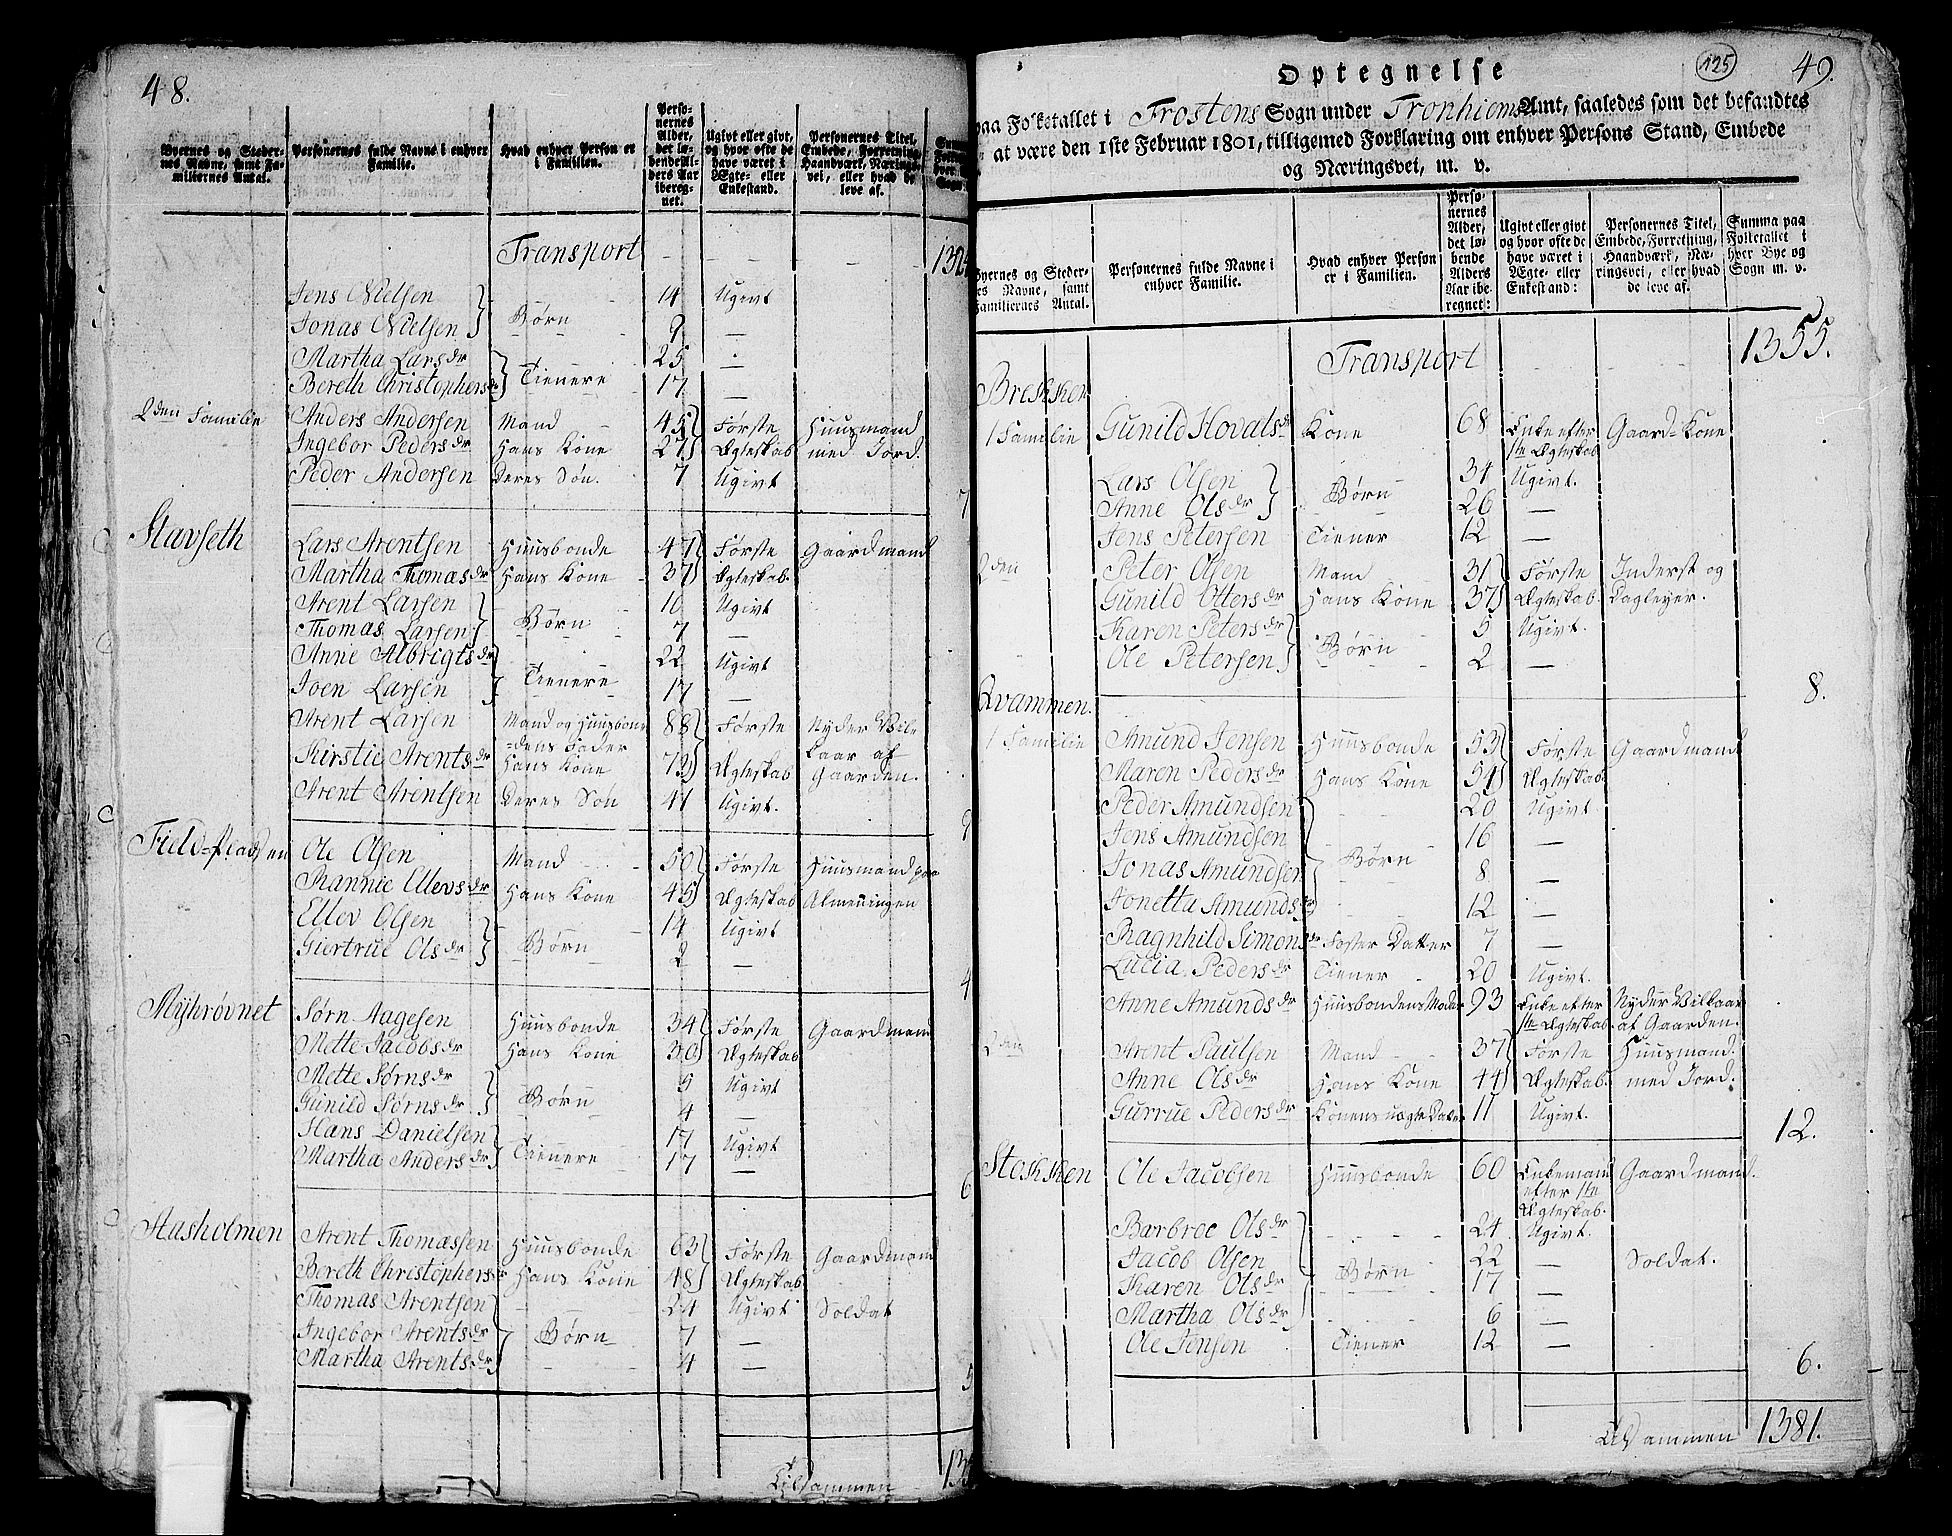 48.
Byernes og Steder-
nes Navne, samt Fa-
miliernes Antal.
Personernes fulde Navne i enhver
Familie.
Hvad enhver Person er
i Familien.
Perso-
nernes
Alder,
det lø-
bende Al-
ders Aar
ibereg-
net.
Ugivt eller givt,
og hvor ofte de
have været i
Ægte- eller
Enkestand.
Personernes Titel,
Embede, Forretning,
Haandværk, Nærings-
vei, eller hvad de
leve af.
Transport - - - 1324
Jens Nielsen } Børn 14 Ugivt
Jonas Nielsen } 9 —
Martha Larsdr } Tienere 25 -
Bereth Christophersdr } 17 —
2den Familie Anders Andersen Mand 45 Første Huusmand
Ingebor Pedersdr Hans Kone 27 Ægteskab med Jord.
Peder Andersen Deres Søn. 7 Ugivt
7
Stavseth Lars Arentsen Huusbonde 47 Første Gaardmand
Martha Thomasdr Hans Kone 37 Ægteskab.
Arent Larsen } Børn 10 Ugivt
Thomas Larsen } 7 —
Anne Albrigtsdr } Tienere 22 Ugivt
Joen Larsen } 17 —
Arent Larsen Mand og Huusbon- 88 Første Nyder Vil-
dens Fader kaar af
Kirstie Arentsdr Hans Kone 73 Ægteskab Gaarden.
Arent Arentsen Deres Søn 41 Ugivt.
9
Field-Pladsen Ole Olsen Mand 50 Første Huusmand paa
Rannie Ellevsdr Hans Kone 45 Ægteskab Almeningen
Ellev Olsen } Børn 14 Ugivt
Giertrue Olsdr } 2 —
4
Myhrøvnet Sørn Aagesen Huusbonde 34 Første Gaardmand
Mette Jacobsdr Hans Kone 30 Ægteskab
Mette Sørnsdr } Børn 5 Ugivt
Gunild Sørnsdr } 4 —
Hans Danielsen } Tienere 17 Ugivt
Martha Andersdr } 17 —
6
Aasholmen Arent Thomassen Huusbonde 63 Første Gaardmand
Bereth Christophersdr Hans Kone 48 Ægteskab
Thomas Arentsen } Børn 24 Ugivt Soldat
Ingebor Arentsdr } 7 —
Martha Arentsdr } 4 —
5
Tilsammen
125
49.
Optegnelse
paa Folketallet i Frostens Sogn under Tronhiems Amt, saaledes som det befandtes
at være den 1ste Februar 1801, tilligemed Forklaring om enhver Persons Stand, Embede
og Næringsvei, m. v.
Byernes og Steder-
nes Navne, samt
Familiernes Antal.
Personernes fulde Navne i
enhver Familie.
Hvad enhver Person
er i Familien.
Perso-
nernes
Alder,
det lø-
bende
Alders
Aar ibe-
regnet:
Ugivt eller givt
og hvor ofte de
have været i
Ægte- eller
Enkestand:
Personernes Titel,
Embede, Forretning,
Haandværk, Næ-
ringsvei, eller hvad
de leve af.
Summa paa
Folketallet i
hver Bye og
Sogn m. v.
Transport - - - 1355.
Brekken
1 Familie Gunild Hovalsdr Kone 68 Enke efter Gaard-Kone
1ste Ægteskab
Lars Olsen } Børn 34 Ugivt.
Anne Olsdr } 26 —
Jens Petersen Tiener 12 —
2den Peter Olsen Mand 31 Første Inderst og
Gunild Ottersdr Hans Kone 37 Ægteskab. Dagleyer.
Karen Petersdr } Børn 5 Ugivt.
Ole Petersen } 2 —
8.
Qvammen.
1 Familie Amund Jensen Huusbonde 53 Første Gaardmand
Maren Pedersdr Hans Kone 54 Ægteskab.
Peder Amundsen } 20 Ugivt
Jens Amundsen } 16 —
Jonas Amundsen } Børn 8 —
Jonetta Amundsdr } 12 —
Ragnhild Simonsdr Foster Datter 7 —
Lucia Pedersdr Tiener 20 Ugivt.
Anne Amundsdr Huusbondens Moder 93 Enke efter Nyder Vilkaar
1ste Ægteskab af Gaarden.
2den Arent Paulsen Mand 37 Første Huusmand
Anne Olsdr Hans Kone 44 Ægteskab. med Jord.
Gurrue Pedersdr Konens uægte Datter 11 Ugivt.
12.
Stokken Ole Jacobsen Huusbonde 60 Enkemand Gaardmand.
efter 1ste
Ægteskab.
Barbroe Olsdr } 24 Ugivt.
Jacob Olsen } 22 — Soldat.
Karen Olsdr } Børn 17 —
Martha Olsdr } 6 —
Ole Jensen Tiener 12 —
6.
Tilsammen 1381.